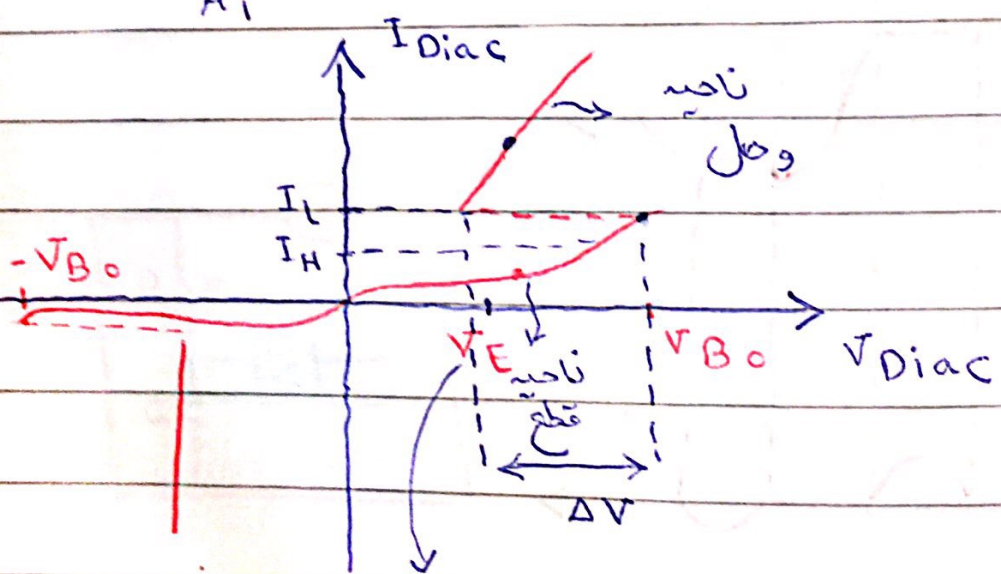 A₁
I Diac
ناحیه
وصل
I_L
I_H
-V_Bo
V_E
V_Bo
V_Diac
ناحیه
قطع
ΔV